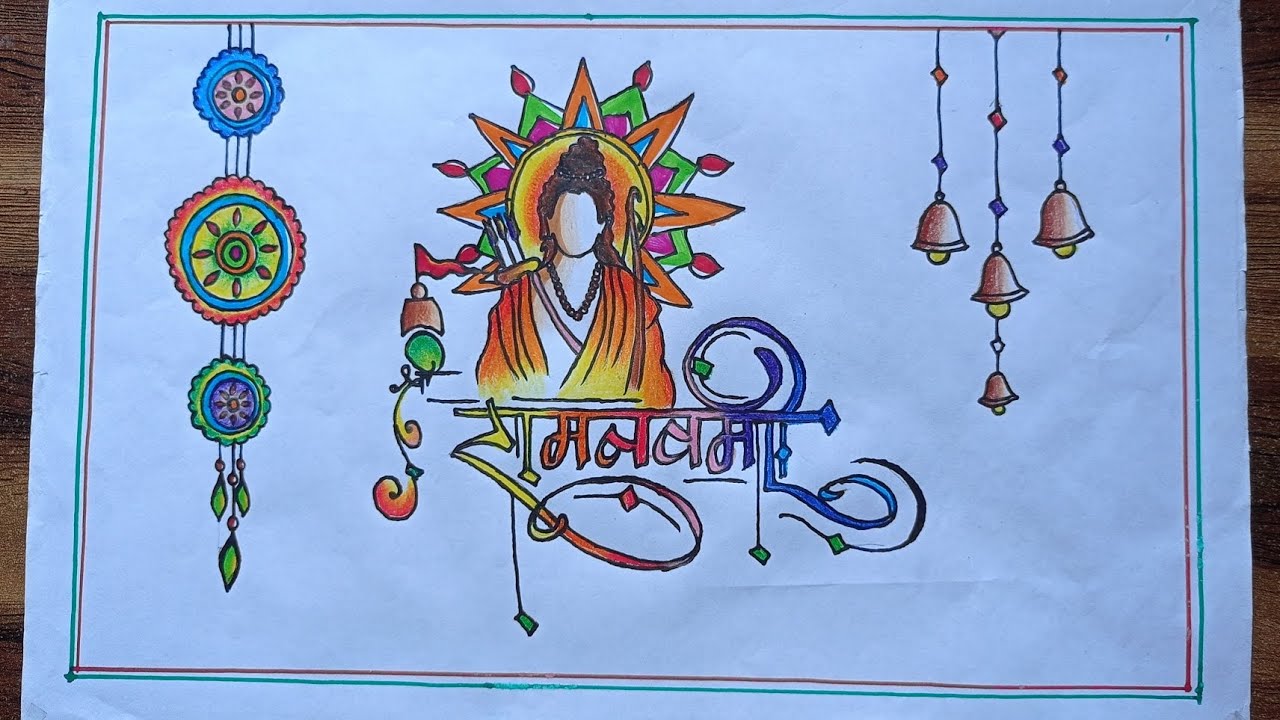 रामनवमी